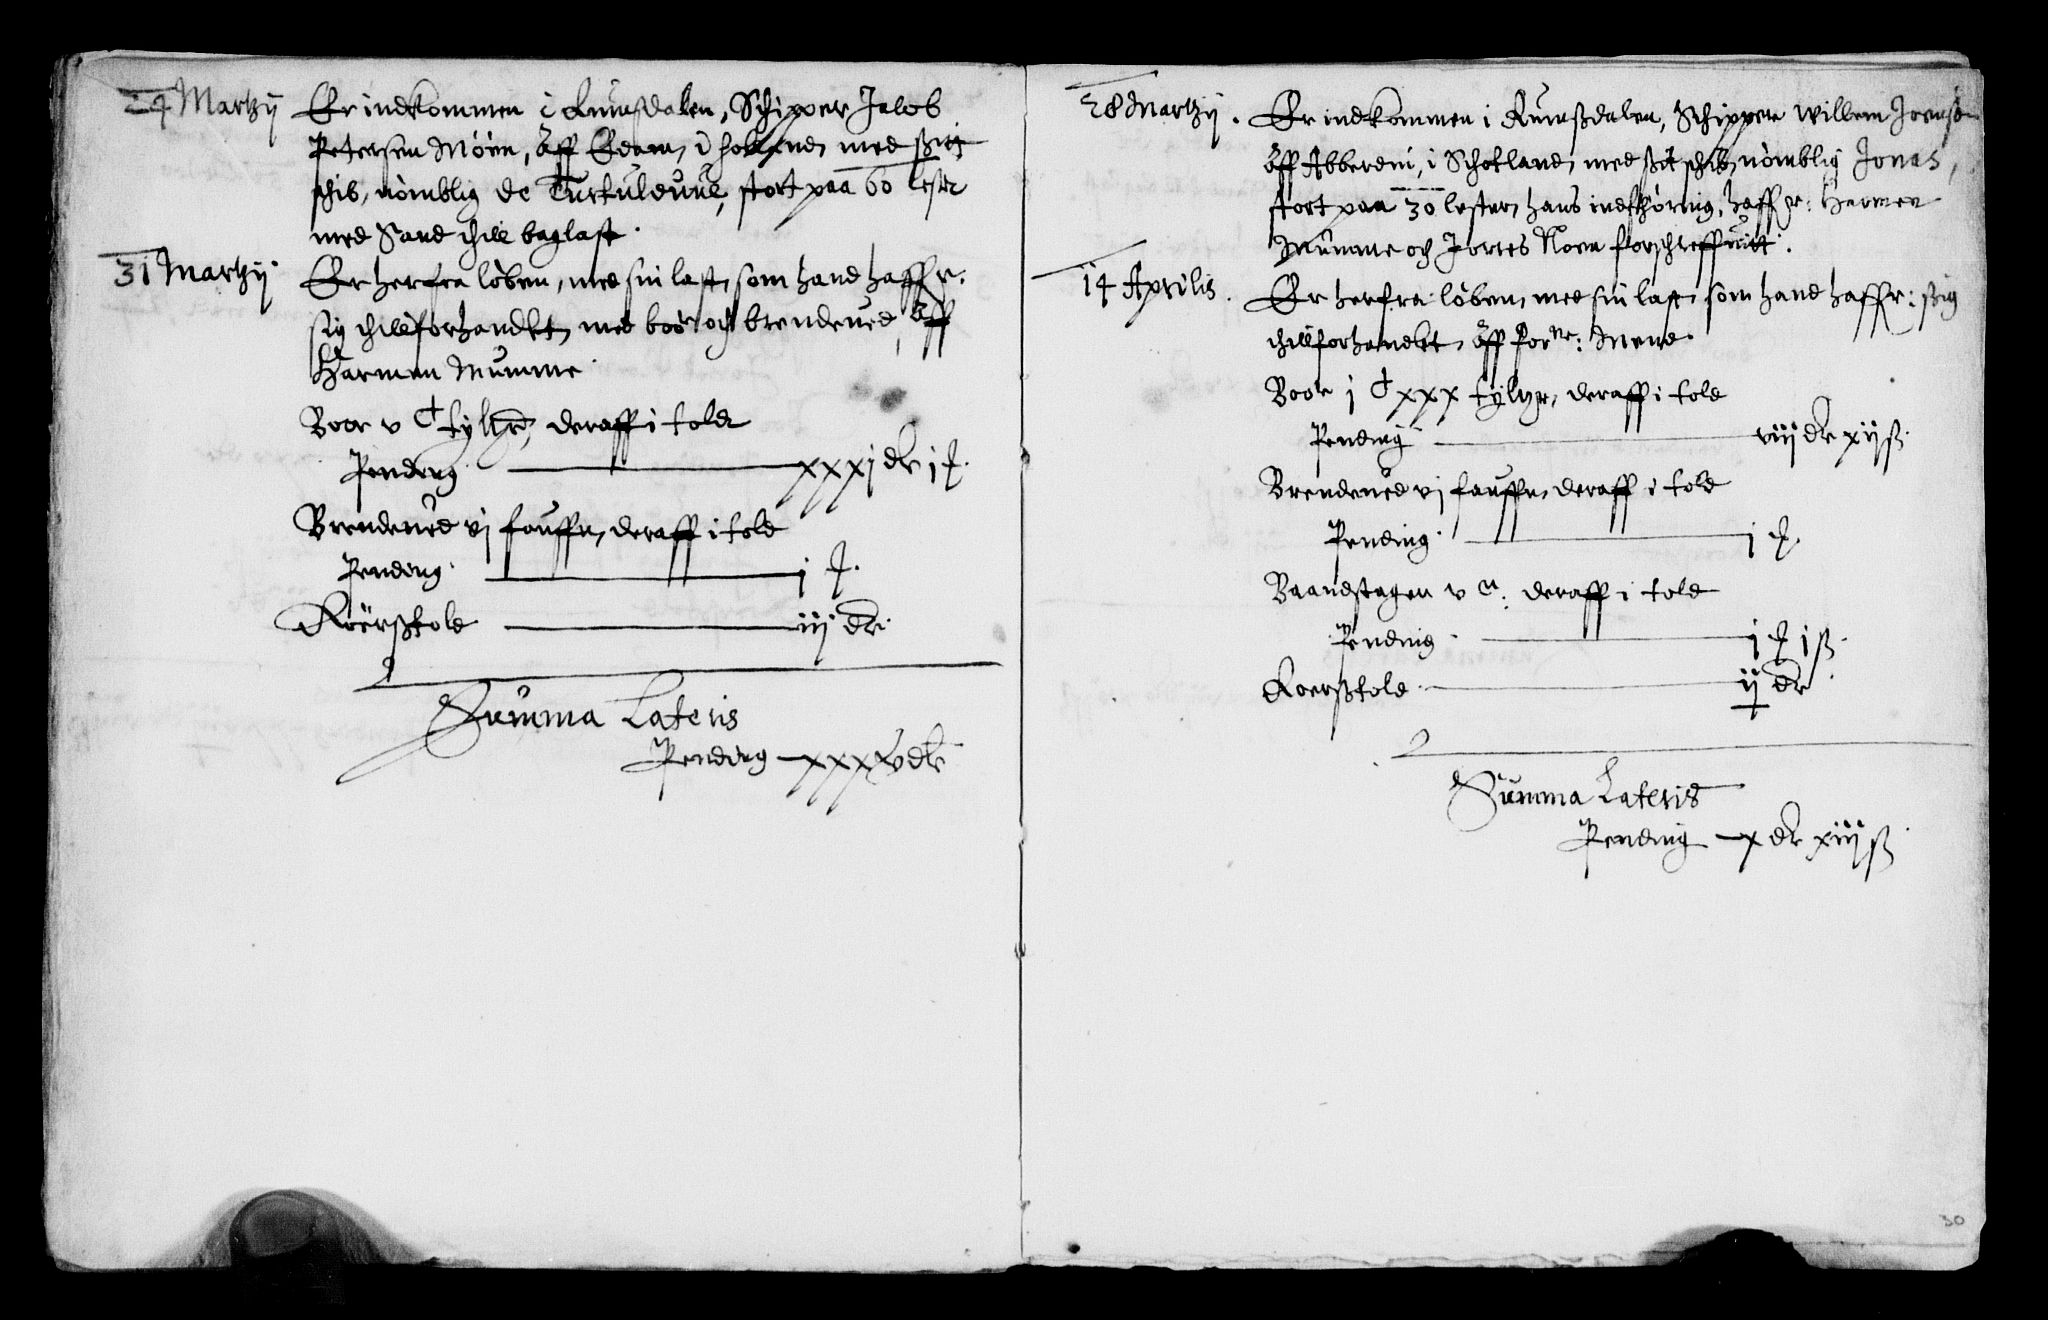 24 Martzij Er indkommen i Rumsdalen, Schipper Jacob
Petersen Möen, Aff Edam, i holland, med ßitt
schib, nömblig de Turtulduue, stort paa 60 lester
med Sand thill baglast.
31 Martzij Er herfra löben, med sin last, som hand haffr:
sig thillforhandlet, med boer och brendeued, Aff
Harmen Mumme
Boer v C tylter, deraff i told
Pending xxxj dr j
Brendeued vj fauffn, deraff i told
Pending j
Roerßtold iij dr.
Summa Lateris
Pending xxxv dr
28 Martzij. Er indkommen i Rumßdalen, Schipper Willem Joenß
Aff Abberdin, i Schotland, med ßit schib, nömblig Jonas,
stort paa 30 lester, hans indfhöring, haffr: Harmen
Mumme och Jortes Noen forschreffuitt.
14 Aprilis. Er herfra löben, med sin last, som hand haffr: ßig
thillforhandlet, Aff forne: Mend.
Boer j C xxx tylter, deraff i told
Pending viij dr xij ß.
Brendeued vj fauffn, deraff i told
Pending j
Baandstager v m: deraff i told
Pending j j ß.
Roerßtold ij dr
Summa Lateris
Pending x dr xiij ß
30